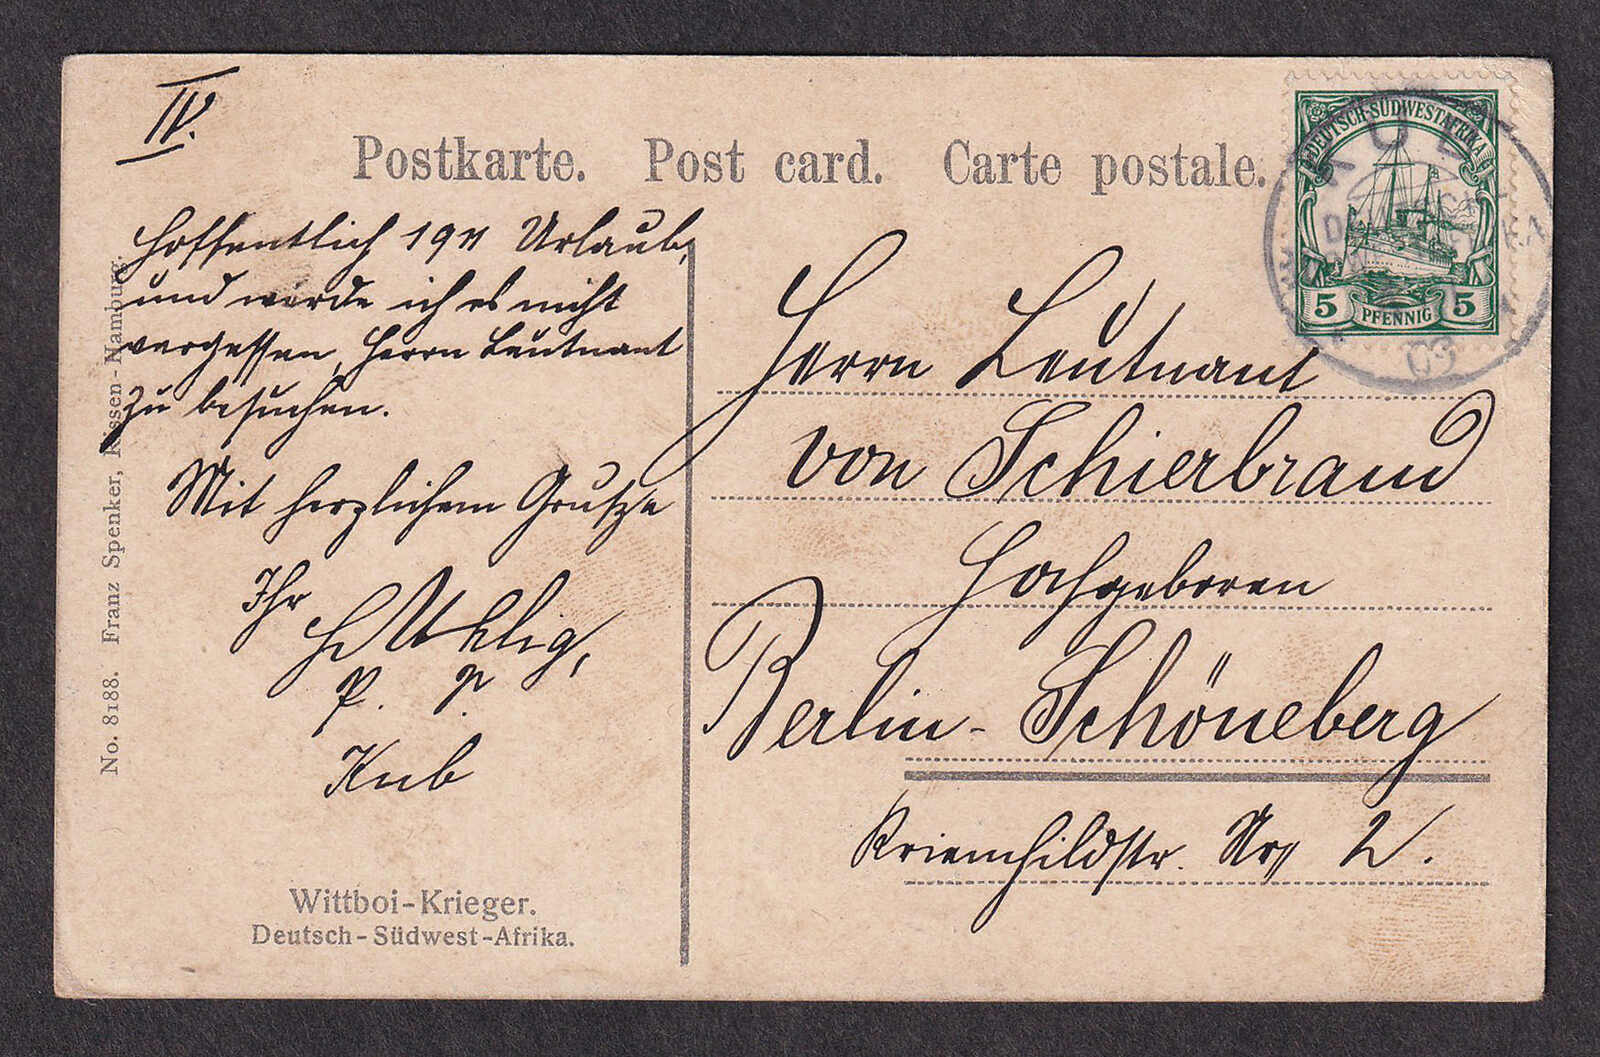 IV.
Postkarte. Post card. Carte postale.
DEUTSCH-SÜDWESTAFRIKA
5 PFENNIG 5
KUB
09
hoffentlich 1911 Urlaub,
und werde ich es nicht
vergessen, Herrn Leutnant
zu besuchen.
Mit herzlichem Grusze
Ihr
H Uhlig,
Kub
Herrn Leutnant
von Schierbrand
Hochgeboren
Berlin-Schöneberg
Kriemhildstr. Nr. 2.
No. 8188. Franz Spenker, Rissen-Hamburg.
Wittboi-Krieger.
Deutsch-Südwest-Afrika.